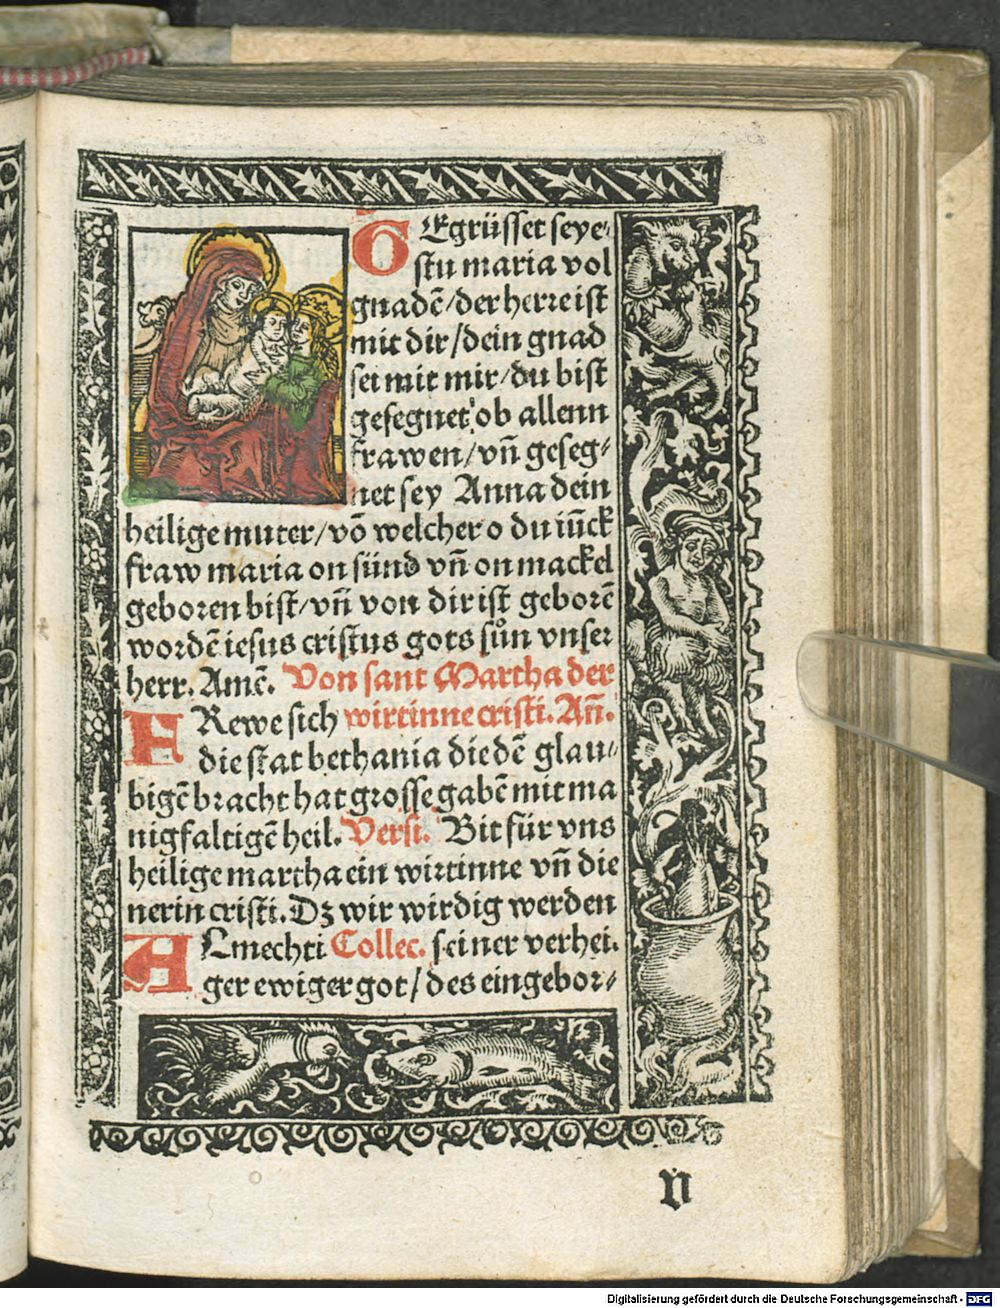 GEgrüsset seye-
stu maria vol
gnadē/der herre ist
mit dir/dein gnad
sei mit mir/du bist
gesegnet ob allenn
frawen/vn̄ geseg-
net sey Anna dein
heilige muter/vō welcher o du iūck
fraw maria on sünd vn̄ on mackel
geboren bist/vn̄ von dir ist geborē
wordē iesus cristus gots sůn vnser
herr. Amē. Von sant Martha der
FRewe sich wirtinne cristi. An̄.
die stat bethania die dē glau-
bigē bracht hat grosse gabē mit ma
nigfaltigē heil. Versi. Bit für vns
heilige martha ein wirtinne vn̄ die
nerin cristi. Dz wir wirdig werden
ALmechti Collec. seiner verhei.
ger ewiger got/des eingebor-
N
Digitalisierung gefördert durch die Deutsche Forschungsgemeinschaft - DFG